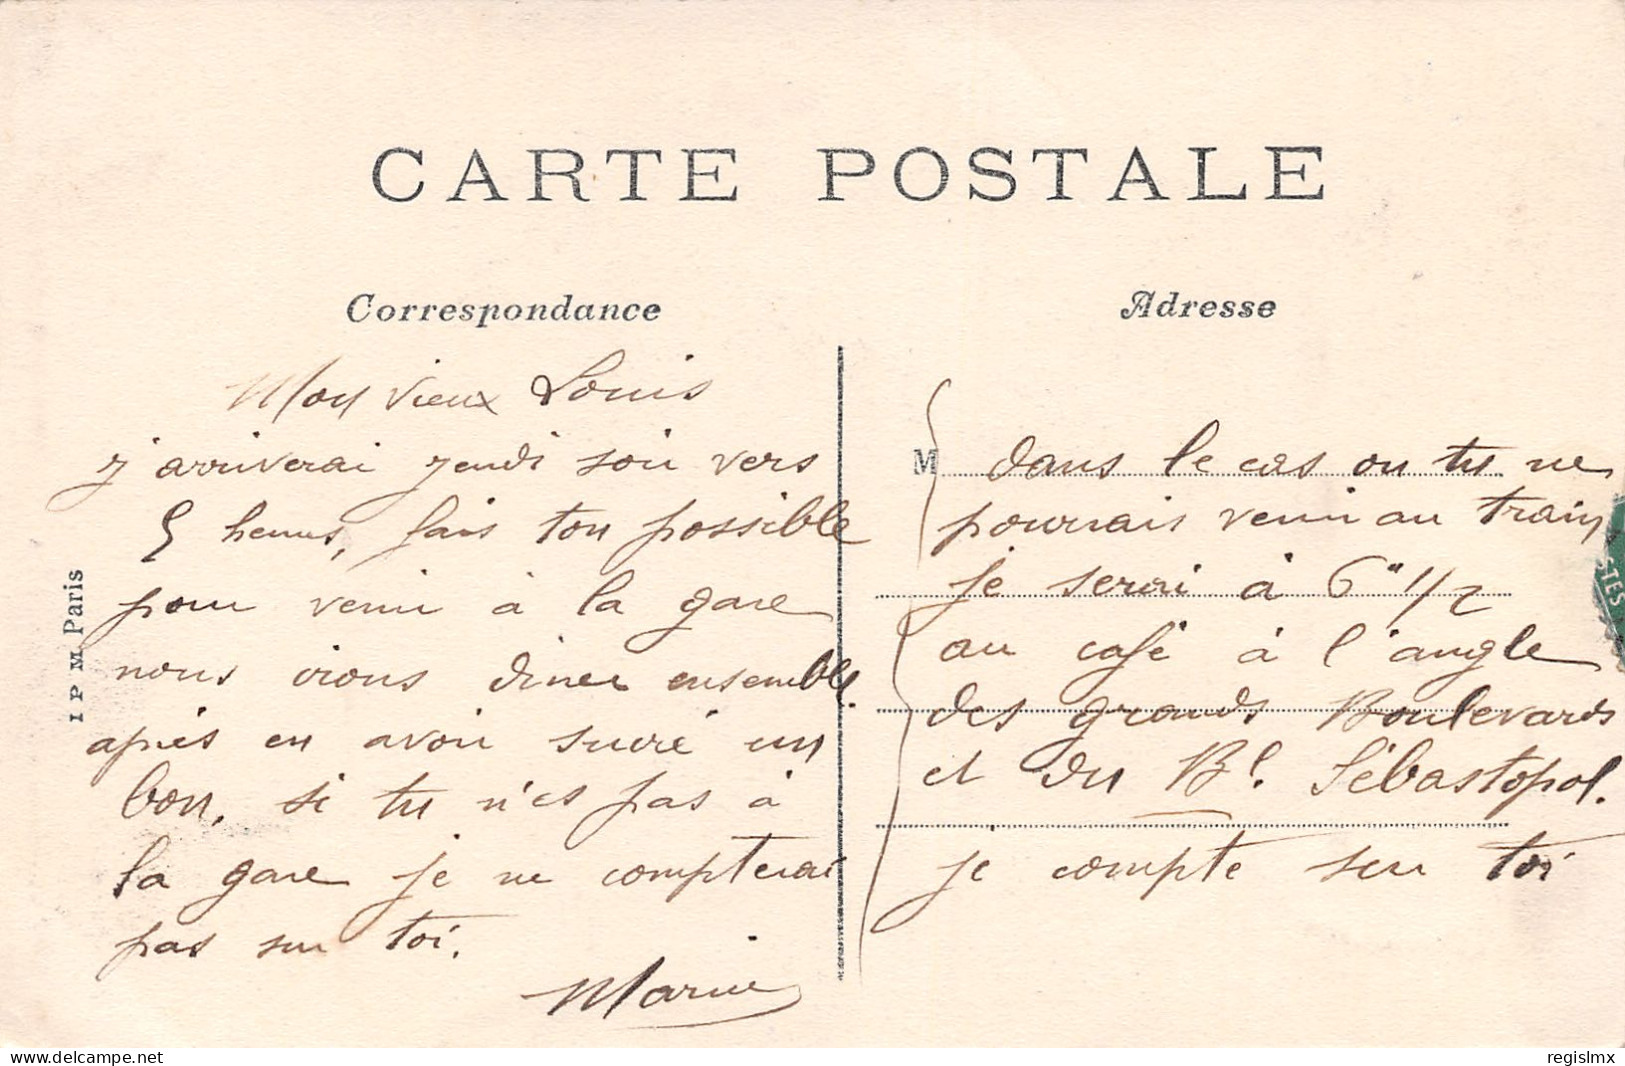 CARTE POSTALE
Correspondance
Mon vieux Louis
j'arriverai jeudi soir vers
5 heures, fais ton possible
pour venir à la gare
nous irons diner ensemble.
après en avoir sucré un
bon. si tu n'es pas à
la gare je ne compterai
pas sur toi.
Marius
I P M Paris
Adresse
M dans le cas ou tu ne
pourrais venir au train
je serai à 6" 1/2
au café à l'angle
des grands Boulevards
et du Bd. Sébastopol.
je compte sur toi
STES
delcampe.net
regislmx